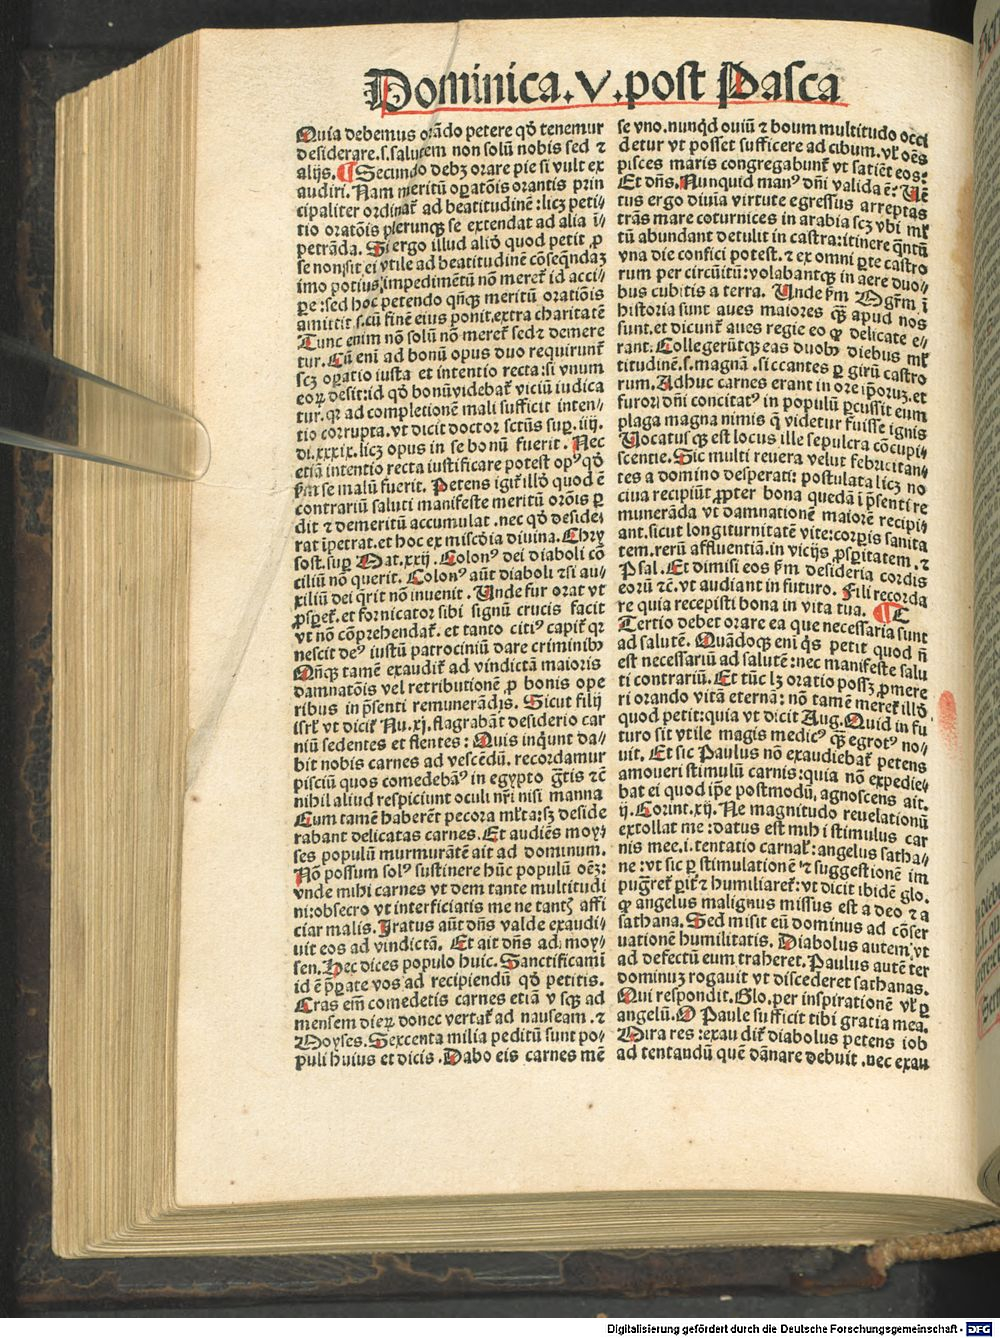 Dominica. V. post Pasca
Quia debemus orãdo petere qđ tenemur
desiderare.s.salutem non solũ nobis sed ⁊
alijs. ¶ Secundo debꝫ orare pie si vult ex
audiri. Nam meritũ oꝑatõis orantis prin
cipaliter ordinat᷑ ad beatitudinẽ: licꝫ peti⸗
tio oratõis plerunqꝫ se extendat ad alia ĩ⸗
petrãda. Si ergo illud aliđ quod petit ꝓ
se non sit ei vtile ad beatitudinẽ cõseq̃ndaꝫ
imo potius impedimẽtũ nõ meret᷑ id acci⸗
pe: sed hoc petendo qñqꝫ meritũ oratiõis
amittit s. cũ finẽ eius ponit. extra charitatẽ
Tunc enim nõ solũ nõ meret᷑ sed ⁊ demere
tur. Cũ eni ad bonũ opus duo requirunt᷑
scꝫ oꝑatio iusta et intentio recta: si vnum
eoꝝ desit: id qđ bonũ videbat᷑ viciũ iudica
tur. qꝛ ad completionẽ mali sufficit inten⸗
tio corrupta. vt dicit doctor sctũs suꝑ. iiij.
di. xxxix. licꝫ opus in se bonũ fuerit. Nec
etiã intentio recta iustificare potest opꝰ qđ
ẜm se malũ fuerit. Petens igit᷑ illđ quod ẽ
contrariũ saluti manifeste meritũ orõis ꝑ
dit ⁊ demeritũ accumulat. nec qđ deside⸗
rat ĩpetrat. et hoc ex miscđia diuina. Chry
sost. suꝑ Mat. xxij. Colonꝰ dei diaboli cõ
ciliũ nõ querit. Colonꝰ aũt diaboli ⁊ si au⸗
xiliũ dei q̃rit nõ inuenit. Unde fur orat vt
ꝓsꝑet᷑. et fornicator sibi signũ crucis facit
vt nõ cõprehendat᷑. et tanto citiꝰ capit᷑ qꝛ
nescit deꝰ iustũ patrociniũ dare criminibꝫ
Qñqꝫ tamẽ exaudit᷑ ad vindictã maioris
damnatõis vel retributionẽ ꝓ bonis ope
ribus in p̃senti remunerãdis. Sicut filij
isrł vt dicit᷑ Nu. xj. flagrabãt desiderio car
niũ sedentes et flentes: Quis inq̃unt da⸗
bit nobis carnes ad vescẽdũ. recordamur
pisciũ quos comedebãꝰ in egypto gr̃tis ⁊c̃
nihil aliud respiciunt oculi nr̃i nisi manna
Cum tamẽ haberẽt pecora mľta: sꝫ deside
rabant delicatas carnes. Et audiẽs moy⸗
ses populũ murmurãtẽ ait ad dominum.
Nõ possum solꝰ sustinere hũc populũ oẽꝫ:
vnde mihi carnes vt dem tante multitudi
ni: obsecro vt interficiatis me ne tantꝭ affi
ciar malis. Iratus aũt dñs valde exaudi⸗
uit eos ad vindictã. Et ait dñs ad moy⸗
sen. Hec dices populo huic. Sanctificamĩ
id ẽ p̃parate vos ad recipiendũ qđ petitis.
Cras em̃ comedetis carnes etiã vsqꝫ ad
mensem dieꝝ donec vertat᷑ ad nauseam. ⁊
Moyses. Sexcenta milia peditũ sunt po⸗
puli huius et dicis. Dabo eis carnes mẽ
se vno. nunqđ ouiũ ⁊ boum multitudo occi
detur vt posset sufficere ad cibum. vľ oẽs
pisces maris congregabunt᷑ vt satiẽt eos?
Et dñs. Nunquid manꝰ dñi valida ẽ? Uẽ
tus ergo diuĩa virtute egressus arreptas
trãs mare coturnices in arabia scꝫ vbi mľ
tũ abundant detulit in castra: itinere q̃ntũ
vna die confici potest. ⁊ ex omni ꝑte castro
rum per circũitũ: volabantqꝫ in aere duo⸗
bus cubitis a terra. Unde ẜm Mgr̃m ĩ
historia sunt aues maiores qꝫ apud nos
sunt. et dicunt᷑ aues regie eo ꝙ delicate e⸗
rant. Collegerũtqꝫ eas duobꝫ diebus mľ
titudinẽ. s. magnã. siccantes ꝑ girũ castro
rum. Adhuc carnes erant in ore ip̃oruꝫ. et
furor dñi concitatꝰ in populũ ꝑcussit eum
plaga magna nimis q̃ videtur fuisse ignis
Uocatusqꝫ est locus ille sepulcra cõcupi⸗
scentie. Sic multi reuera velut febricitan⸗
tes a domino desperati: postulata licꝫ no
ciua recipiũt ꝓpter bona quedã ĩ p̃senti re
munerãda vt damnationẽ maiorẽ recipi⸗
ant. sicut longiturnitatẽ vite: corꝑis sanita
tem. rerũ affluentiã. in vicijs ꝓsꝑitatem. ⁊
Psal. Et dimisi eos ẜm desideria cordis
eorũ ⁊c̃. vt audiant in futuro. Fili recorda
re quia recepisti bona in vita tua. ¶ E
Tertio debet orare ea que necessaria sunt
ad salutẽ. Quãdoqꝫ eni q̃s petit quod ñ
est necessariũ ad salutẽ: nec manifeste salu
ti contrariũ. Et tũc lꝫ oratio possꝫ ꝓmere
ri orando vitã eternã: nõ tamẽ meret᷑ illđ
quod petit: quia vt dicit Aug. Quid in fu
turo sit vtile magis medicꝰ qꝫ egrotꝰ no⸗
uit. Et sic Paulus nõ exaudiebat᷑ petens
amoueri stimulũ carnis: quia nõ expedie⸗
bat ei quod ip̃e postmodũ, agnoscens ait.
ij. Corint. xij. Ne magnitudo reuelationũ
extollat me: datus est mihi stimulus car
nis mee. i. tentatio carnaľ: angelus satha⸗
ne: vt sic ꝑ stimulationẽ ⁊ suggestionẽ im
pugret᷑ ꝑit᷑ ⁊ humiliaret᷑: vt dicit ibidẽ glo.
ꝙ angelus malignus missus est a deo ⁊ a
sathana. Sed misit eũ dominus ad cõser
uationẽ humilitatis. Diabolus autem vt
ad defectũ eum traheret. Paulus autẽ ter
dominuꝫ rogauit vt discederet sathanas.
Qui respondit. Glo. per inspirationẽ vľ ꝑ
angelũ. O Paule sufficit tibi gratia mea.
Mira res: exaudit᷑ diabolus petens iob
ad tentandũ quẽ dãnare debuit. nec exau
Digitalisierung gefördert durch die Deutsche Forschungsgemeinschaft - DFG